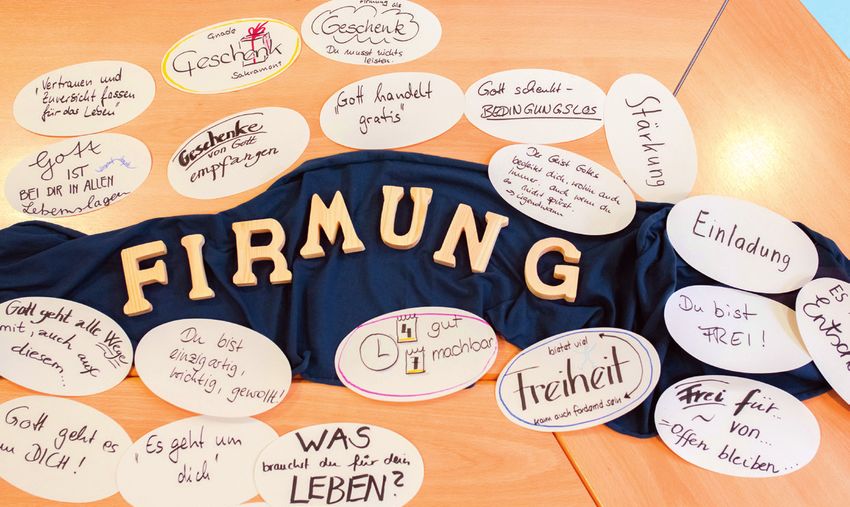 Gnade
Geschenk
Sakrament
Firmung als
Geschenk
Du musst nichts
leisten.
"Vertrauen und
Zuversicht fassen
für das Leben"
Geschenke
von Gott
empfangen
"Gott handelt
gratis"
Gott schenkt-
BEDINGUNGSLOS
Stärkung
Gott
IST
BEI DIR IN ALLEN
Lebenslagen
Der Geist Gottes
begleitet dich, wohin auch
immer; auch wenn du
es nicht spürst.
→ irgendwann
Einladung
FIRMUNG
Du bist
FREI!
Es
Gott geht alle Wege
mit; auch auf
diesem...
Du bist
einzigartig,
wichtig, gewollt!
4 gut
7 machbar
bietet viel
Freiheit
kann auch fordernd sein
Frei für..
~ von...
=offen bleiben...
Gott geht es
um DICH!
"Es geht um
dich"
WAS
brauchst du für dein
LEBEN?